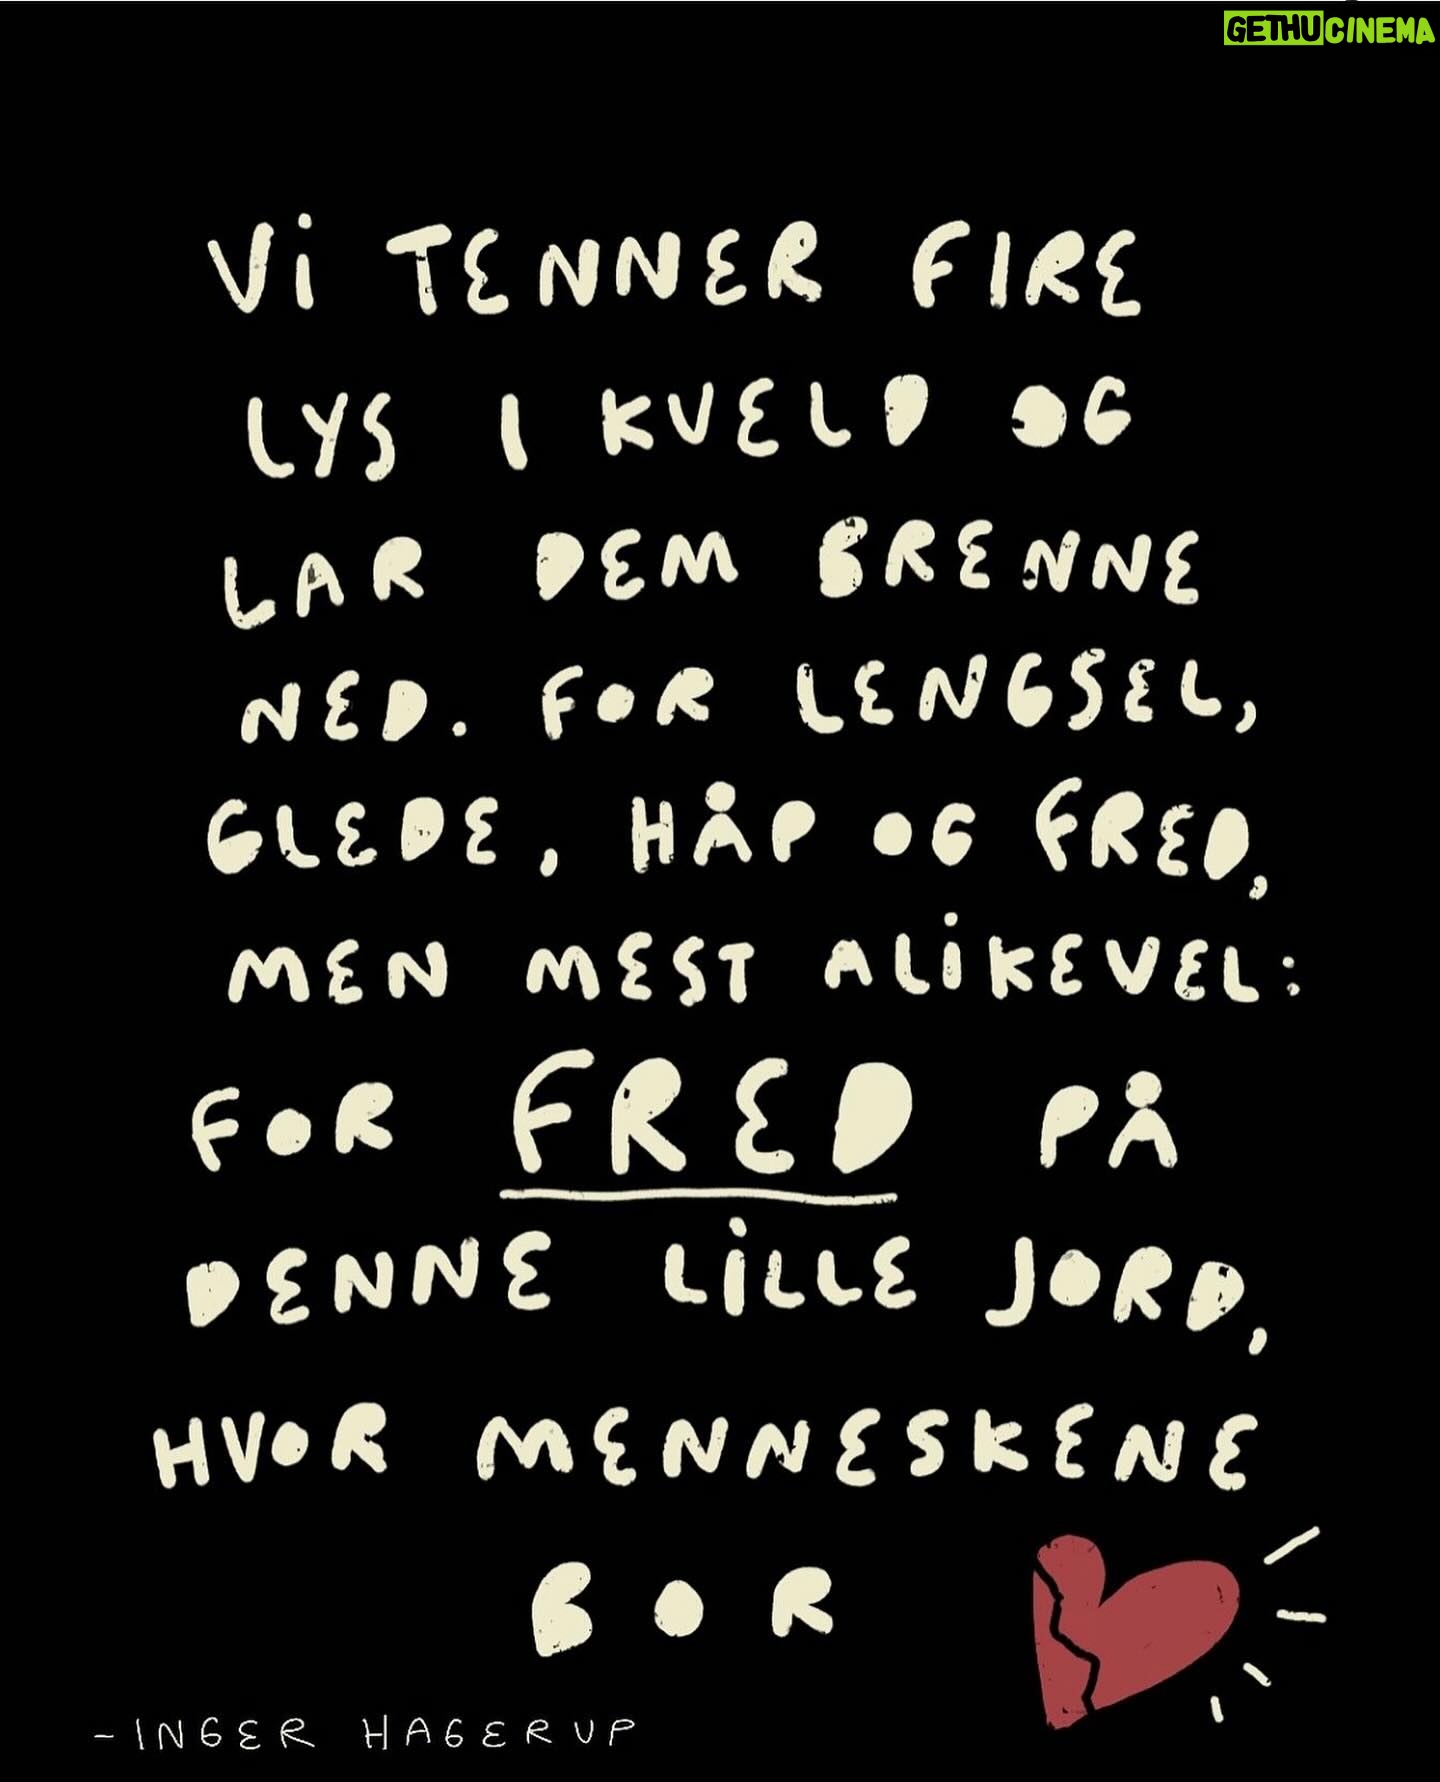 GETHUCINEMA
Vi TENNER FIRE
LYS I KVELD OG
LAR DEM BRENNE
NED. FOR LENGSEL,
GLEDE, HÅP OG FRED,
MEN MEST ALiKEVEL:
FOR FRED PÅ
DENNE LiLLE JORD,
HVOR MENNESKENE
BOR
-INGER HAGERUP